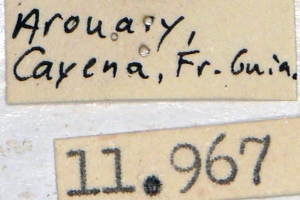 Arouary,
Cayena, Fr. Guia.
11.967